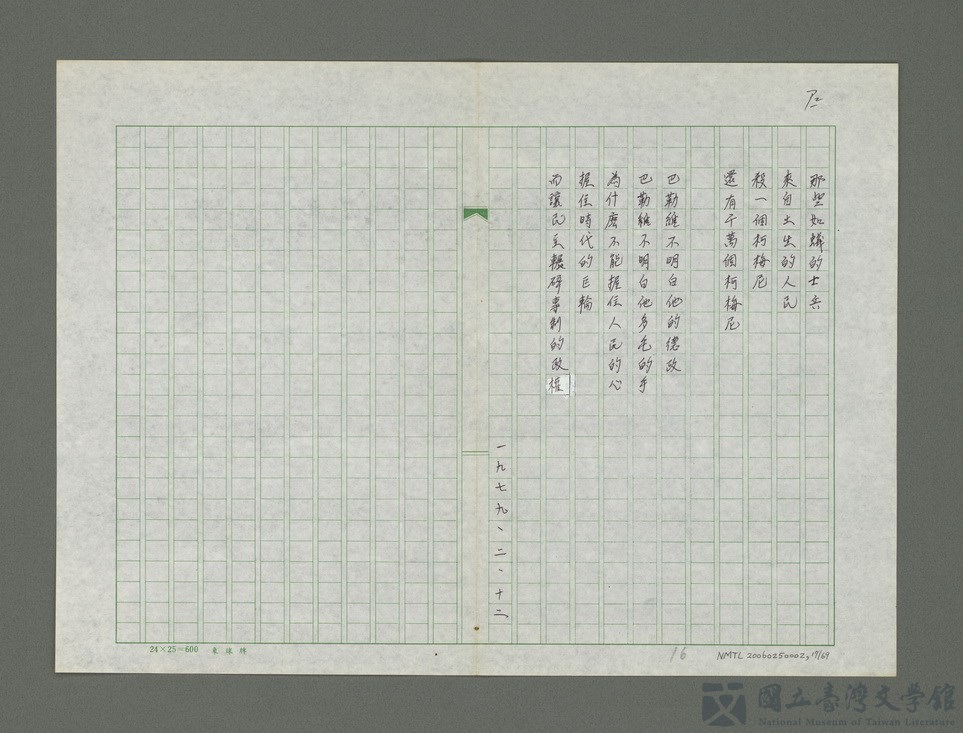 那些如蟻的士兵
來自土生的人民
殺一個柯梅尼
還有千萬個柯梅尼
巴勒維不明白他的德政
巴勒維不明白他多毛的手
為什麼不能握住人民的心
握住時代的巨輪
而讓民主輾碎專制的政權
一九七九、二、十二、
24×25=600
16
NMTL 20060250002, 17/69
國立臺灣文學館
National Museum of Taiwan Literature